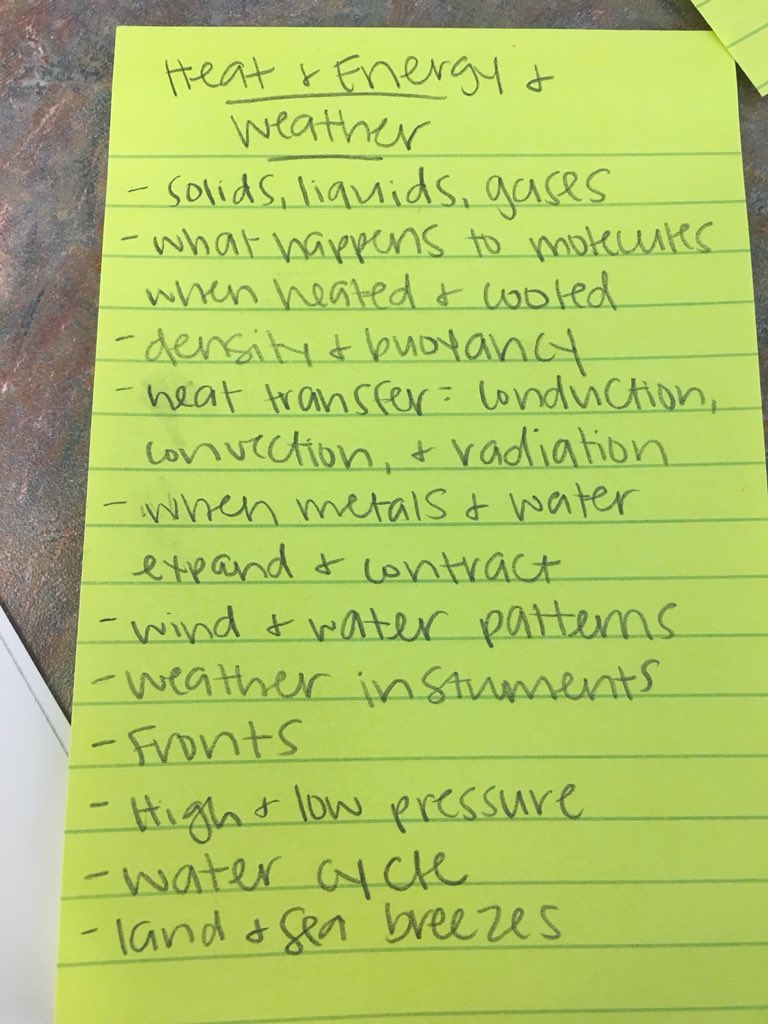 Heat & Energy &
Weather
- solids, liquids, gases
- what happens to molecules
when heated & cooled
- density & buoyancy
- heat transfer = conduction,
convection, & radiation
- when metals & water
expand & contract
- wind & water patterns
- weather instuments
- Fronts
- High & low pressure
- water cycle
- land & sea breezes